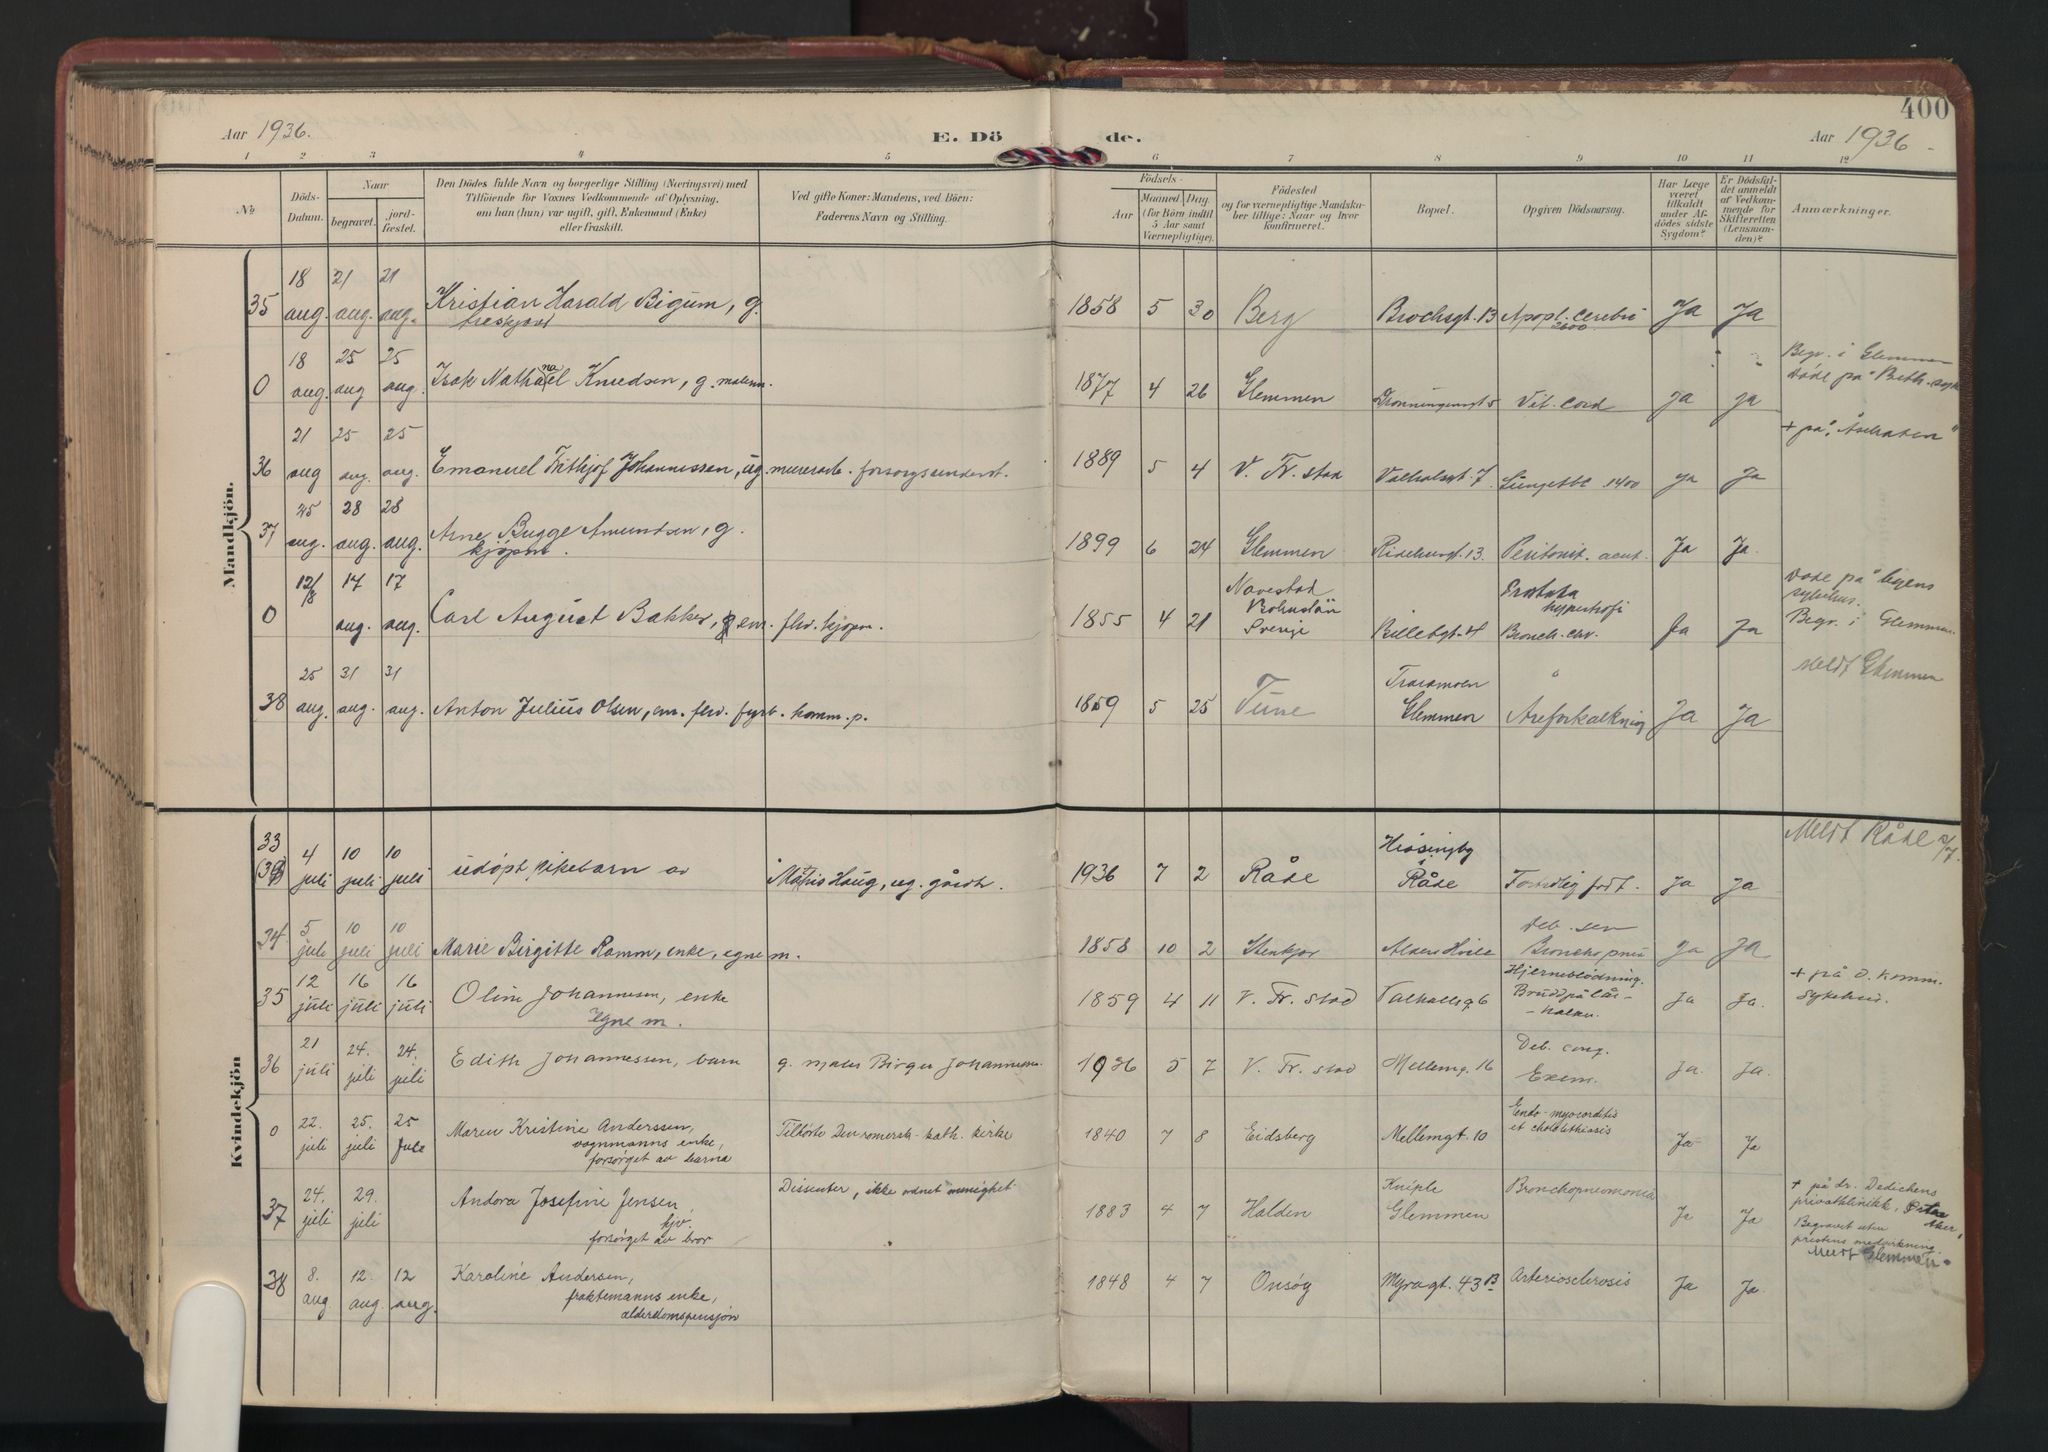 400
Aar 1936. E. Dö de. Aar 1936
1 2 3 4 5 6 7 8 9 10 11 12
No
Döds-Datum.
Naar
begravet. jord-fæstet.
Den Dödes fulde Navn og borgerlige Stilling (Næringsvei) med
Tilföiende for Voxnes Vedkommende af Oplysning,
om han (hun) var ugift, gift, Enkemand (Enke)
eller fraskilt.
Ved gifte Koner: Mandens, ved Börn:
Faderens Navn og Stilling.
Födsels-
Aar Maaned Dag.
(for Börn indtil
5 Aar samt
Værnepligtige).
Födested
og for værnepligtige Mandska-
ber tillige: Naar og hvor
konfirmeret.
Bopæl.
Opgiven Dödsaarsag.
Har Læge
været
tilkaldt
under Af-
dödes sidste
Sygdom?
Er Dödsfal-
det anmeldt
af Vedkom-
mende for
Skifteretten
(Lensman-
den)?
Anmærkninger.
Mandkjön.
35 18 aug. 21 aug. 21 aug. Kristian Harald Bigum, g. 1858 5 30 Berg Brochsgt. 13 Apopl. cerebri Ja Ja
0 18 aug. 25 aug 25 aug. Isak Nathanael Knudsen, g. 1877 4 26 Glemmen Vit. cord ja ja Begr. i Glemmen
Döde på
36 21 aug 25 aug. 25 aug. Emanuel Frithjof Johannessen, ug. murerarb. forsorgsunderst. 1889 5 4 V. Fr. stad Valhalsgt. 7 ja Ja + på
37 25 aug. 28 aug. 28 aug. Arne Bugge Amundsen, g.
kjöpm. 1899 6 24 Glemmen 13. Peritonit. acut. Ja Ja.
0 12/8 17 aug. 17 aug. Carl August Bakker, em. fhv. kjöpm. 1855 4 21 Navestad
Bohuslän
Sverige Billebgt. 4 Prostata
hypertrofi
Bronch. chr. Ja Ja Döde på byens
sykehus.
Begr. i Glemmen.
38 25 aug. 31 aug. 31 aug. Anton Julius Olsen, em. fhv. fyrb. komm. p. 1859 5 25 Tune Traramoen
Glemmen Areforkalkning Ja Ja Meldt Glemmen
Kvindekjön
33 4 juli 10 juli 10 juli udöpt pikebarn av Haug, ug. 1936 7 2 Råde
Råde Fortidlig född. Ja Ja Meldt Råde 2/7.
34 5 juli 10 juli 10 juli Marie Birgitte Ramm, enke, egne m. 1858 10 2 Stenkjær Alders Hvile Deb. sen
Bronchopneu Ja Ja
35 12 juli 16 juli 16 juli Oline Johannesen, enke
Egne m. 1859 4 11 V. Fr. stad Valhallsg. 6 Hjerneblödning.
Brudd på lår-
halsen. Ja Ja. + på O. komm.
sykehus.
36 21 juli 24. juli 24. juli Edith Johannessen, barn g. Birger Johannessen 1936 5 7 V. Fr. stad Mellemg. 16 Deb. cong.
Exem. Ja. Ja.
0 22. juli 25. juli 25 juli Maren Kristine Anderssen,
vognmanns enke,
forsörget av barna Tilhörte Den romersk-kath. kirke 1840 7 8 Eidsberg Mellemgt. 10 Endo-myocarditis
et cholelithiasis Ja Ja
37 24. juli 29. juli Andora Josefine Jensen,
forsörget av bror Dissenter, ikke ordnet menighet 1883 4 7 Halden Kniple
Glemmen Bronchopneumonia Ja Ja + på dr. Dedichens
privatklinikk, Östre
Aker,
Begravet uten
prestens medvirkning.
Meldt Glemmen.
38 8. aug. 12. aug. 12 aug. Karoline Andersen,
fraktemanns enke,
alderdomspensjon 1848 4 7 Onsöy Myragt. 43 B Arteriosclerosis Ja Ja.